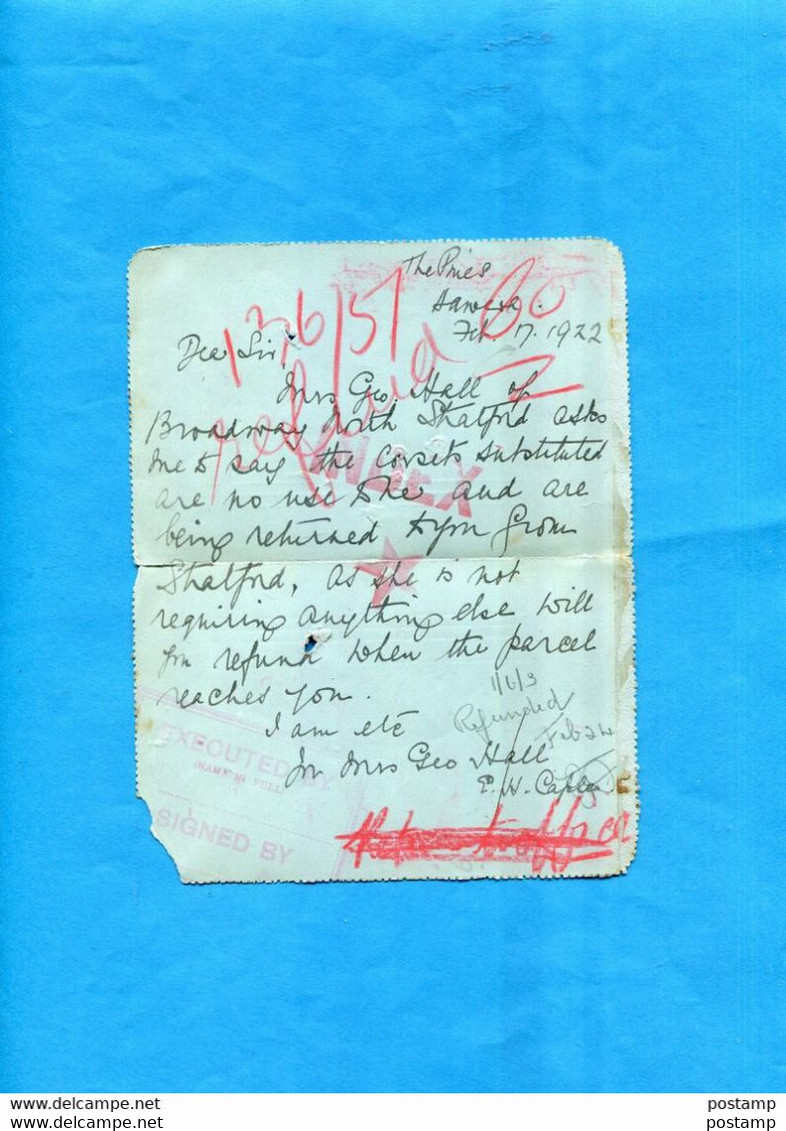 The Pines
Hawera.
Feb. 17. 1922
Dear Sir,
Mrs Geo. Hall of
Broadway North Stratford asks
me to say the corsets substituted
are no use to her and are
being returned to you from
Stratford, as she is not
requiring anything else will
you refund when the parcel
reaches you.
I am etc
for Mrs Geo Hall
1/6/3
Refunded
Feb 24
refund
INDEX
EXECUTED BY
(NAME IN FULL)
SIGNED BY
delcampe.net
postamp
delcampe.net
postamp